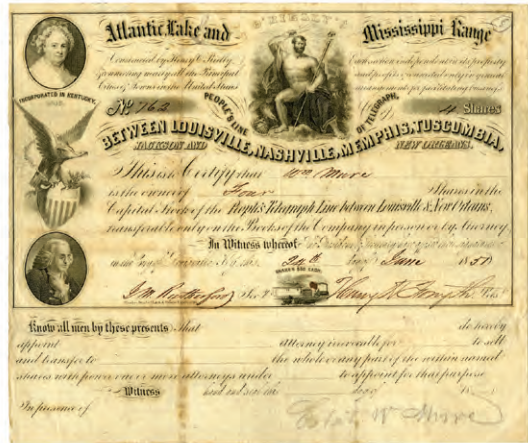 O'RIELLY'S
Atlantic, Lake and Mississippi Range
Constructed by Henry O'Rielly
connecting nearly all the Principal
Cities & Towns in the United States
Each section independent in its property
and profits, connected only in general
arrangements for
INCORPORATED IN KENTUCKY,
No. 762
PEOPLE'S LINE OF TELEGRAPH,
4 Shares
BETWEEN LOUISVILLE, NASHVILLE, MEMPHIS, TUSCUMBIA,
JACKSON AND NEW ORLEANS.
This is to Certify that Wm Mure
is the owner of Four Shares in the
Capital Stock of the People's Telegraph Line between Louisville & New Orleans,
transferable only on the Books of the Company in person or by Attorney.
In Witness whereof
24th day June 1851
J. M. Rutherford Sec'y
Pres't
Know all men by these presents that do hereby
appoint attorney irrevocable for to sell
and transfer to the whole or any part of the within named
shares with power one or more attorneys under to appoint for that purpose
Witness hand and seal this day 18
In presence of
Wm Mure